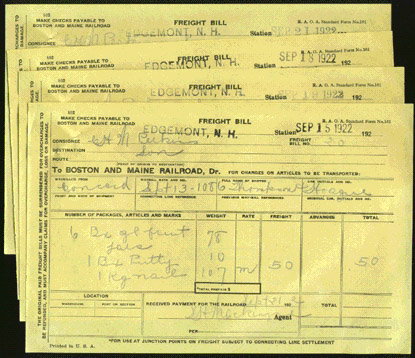 102
MAKE CHECKS PAYABLE TO
BOSTON AND MAINE RAILROAD
FREIGHT BILL
R. A. O. A. Standard Form No. 101
EDGEMONT, N. H.
Station SEP 21 1922 192
CONSIGNEE
102
MAKE CHECKS PAYABLE TO
BOSTON AND MAINE RAILROAD
FREIGHT BILL
R. A. O. A. Standard Form No. 101
EDGEMONT, N. H.
Station SEP 18 1922 192
102
MAKE CHECKS PAYABLE TO
BOSTON AND MAINE RAILROAD
FREIGHT BILL
R. A. O. A. Standard Form No. 101
EDGEMONT, N. H.
Station 1922 192
102
MAKE CHECKS PAYABLE TO
BOSTON AND MAINE RAILROAD
FREIGHT BILL
R. A. O. A. Standard Form No. 101
EDGEMONT, N. H.
Station SEP 15 1922 192
CONSIGNEE
DESTINATION
FREIGHT BILL NO.
ROUTE
(POINT OF ORIGIN TO DESTINATION)
To BOSTON AND MAINE RAILROAD, Dr. FOR CHARGES ON ARTICLES TO BE TRANSPORTED:
WAYBILLED FROM
WAYBILL DATE AND NO.
FULL NAME OF SHIPPER
CAR INITIALS AND NO.
Concord Sept 13-1086 Thompson & Hoague
POINT AND DATE OF SHIPMENT
CONNECTING LINE REFERENCE
PREVIOUS WAYBILL REFERENCES
ORIGINAL CAR INITIALS AND NO.
NUMBER OF PACKAGES, ARTICLES AND MARKS
WEIGHT
RATE
FREIGHT
ADVANCES
TOTAL
6 Bx gl fruit
Jars 78
1 Bx Putty 10
1 Kg nails 107 m 50 50
TOTAL
LOCATION
WAREHOUSE
POST OR SECTION
RECEIVED PAYMENT FOR THE RAILROAD
192
Agent
PER
*FOR USE AT JUNCTION POINTS ON FREIGHT SUBJECT TO CONNECTING LINE SETTLEMENT
Printed in U. S. A.
THE ORIGINAL PAID FREIGHT BILLS MUST BE SURRENDERED FOR OVERCHARGES TO
BE REFUNDED, AND MUST ACCOMPANY CLAIMS FOR OVERCHARGE, LOSS OR DAMAGE.